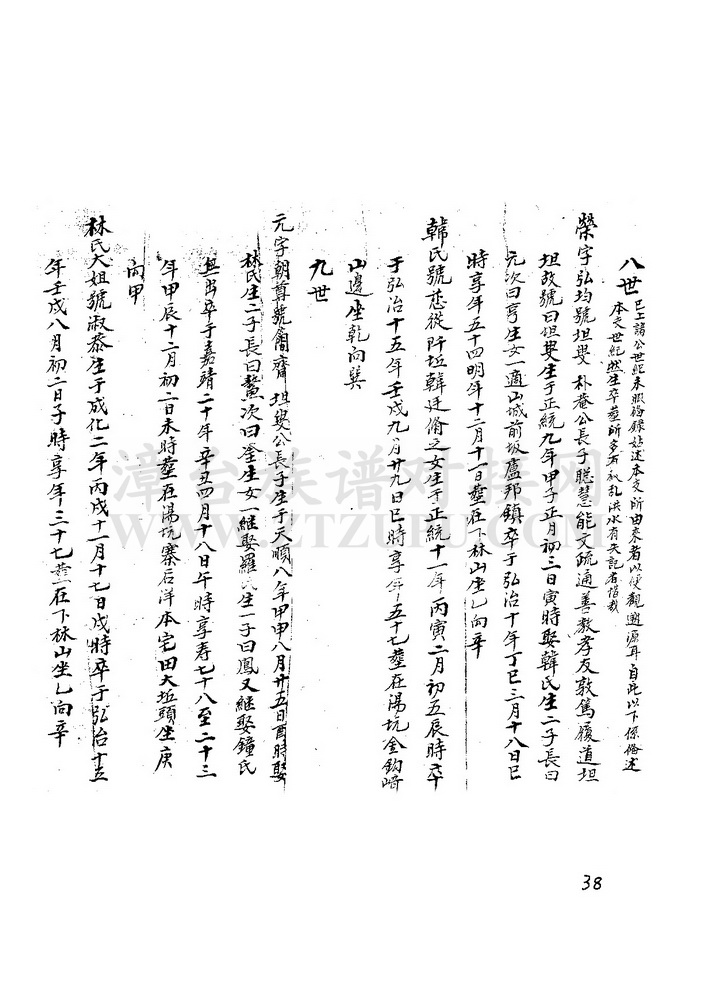 八世 已上諸公世紀未照福錄姑述本支所由來者以便觀遡源耳自此以下係俻述
本支世紀然生卒塟所多有被乱洪水有失記者惜哉
榮字弘均號坦叟 朴菴公長子聰慧能文疏通善教孝友敦篤履道坦
坦故號曰坦叟生于正統九年甲子正月初三日寅時娶韓氏生二子長曰
元次曰亨生女一適山城前坂盧邦鎮卒于弘治十年丁巳三月十八日巳
時享年五十四明年十二月十一日塟在下林山坐乙向辛
韓氏號慈從阡坵韓廷脩之女生于正統十一年丙寅二月初五辰時卒
于弘治十五年壬戌九月廿九日巳時享年五十七塟在湯坑金鈎崎
山邊坐乾向巽
九世
元字朝尊號簡齋 坦叟公長子生于天順八年甲申八月廿五日酉時娶
林氏生二子長曰鰲次曰淦生女一継娶羅氏生一子曰鳳又継娶鐘氏
無出卒于嘉靖二十年辛丑四月十八日午時享寿七十八至二十三
年甲辰十二月初二日未時塟在湯坑寨后洋本宅田大坵頭坐庚
向甲
林氏大姐號淑恭生于成化二年丙戌十一月十七日戌時卒于弘治十五
年壬戌八月初二日子時享年三十七塟在下林山坐乙向辛
38
漳台族谱对接网
WWW.ZTZUPU.COM